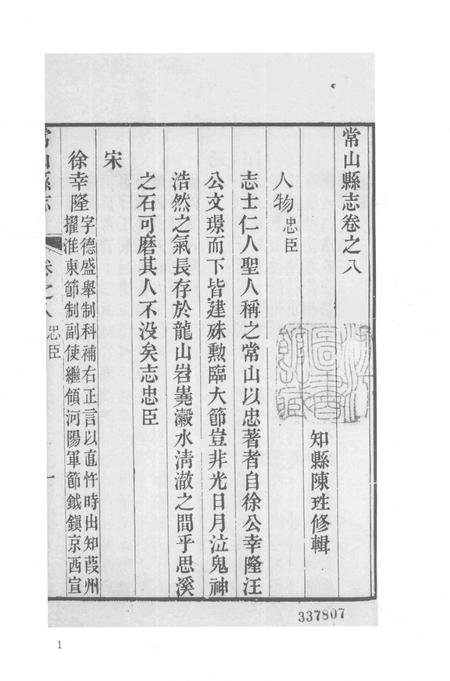 常山縣志卷之八
知縣陳珄修輯
人物忠臣
志士仁人聖人稱之常山以忠著者自徐公幸隆汪
公文璟而下皆建殊勲臨大節豈非光日月泣鬼神
浩然之氣長存於龍山岧嶤瀫水清澈之間乎思溪
之石可磨其人不没矣志忠臣
宋
徐幸隆字德盛舉制科補右正言以直忤時出知葭州
擢淮東節制副使繼領河陽軍節鉞鎮京西宣
常山縣志 卷之八 忠臣 一
337807
1